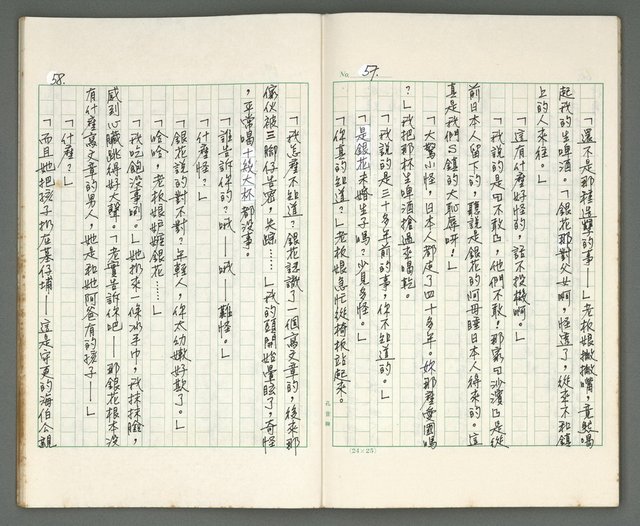 No. 57.
「還不是那種造孽的事——」老板娘撇撇嘴，竟然喝
起我的生啤酒。「銀花那對父女啊，怪透了，從來不和鎮
上的人來往。」
「這有什麼好怪的，話不投機啊。」
「我說的是四不敢四，他們不敢！那家四沙濱四是從
前日本人留下的，聽說是銀花的阿母睡日本人得來的。這
真是我們S鎮的大恥辱呀！」
「大驚小怪，日本人都走了四十多年。妳那麼愛國嗎
？」我把那杯生啤酒搶過來喝乾。
「我說的是三十多年前的事，你不知道的。」
「是銀花來婚生子嗎？少見多怪。」
「你真的知道？」老板娘急忙從椅板站起來。
(24×25)
58.
「我怎麼不知道？銀花認識了一個寫文章的，後來那
傢伙被三腳仔告密，失踪……」我的頭開始暈眩了，奇怪
，平常喝十幾大杯都沒事。
「誰告訴你的？哦——哦 難怪。」
「什麼怪？」
「銀花說的對不對？年輕人，你太幼嫩好欺了。」
「哈哈，老板娘妒嫉銀花……」
「我吃飽沒事咧。」她扔來一條冰手巾，我抹抹臉，
感到心臟跳得好大聲。「老實告訴你吧——那銀花根本沒
有什麼寫文章的男人，她是和她阿爸有的孩子——」
「什麼？」
「而且她把孩子扔在墓仔埔——這是守更的海伯公親